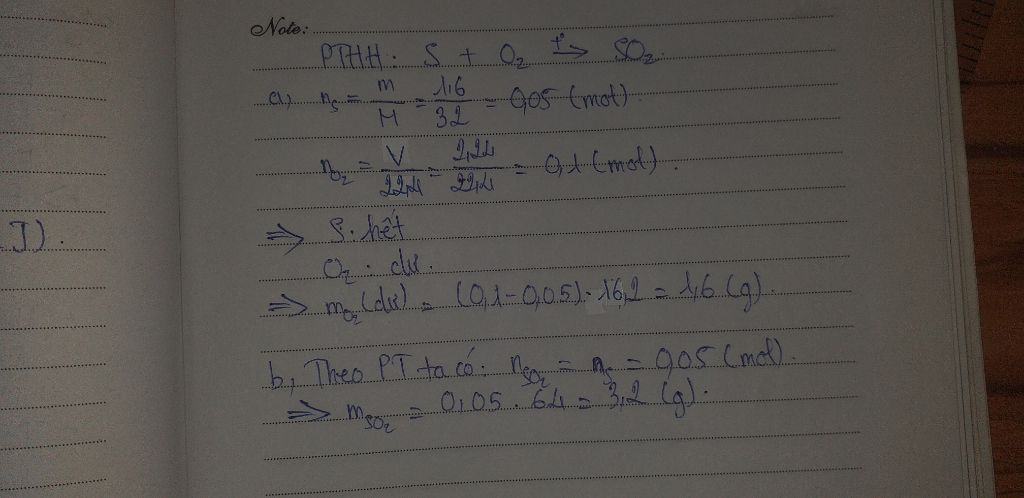 J).
Note:
PTHH: S + O₂ t°→ SO₂
a, nₛ = m/M = 1,6/32 = 0,05 (mol)
n_O₂ = V/22,4 = 2,24/22,4 = 0,1 (mol).
=> S: hết
O₂: dư.
=> m_O₂ (dư) = (0,1-0,05).16,2 = 1,6 (g).
b, Theo PT ta có: n_SO₂ = nₛ = 0,05 (mol).
=> m_SO₂ = 0,05 . 64 = 3,2 (g).